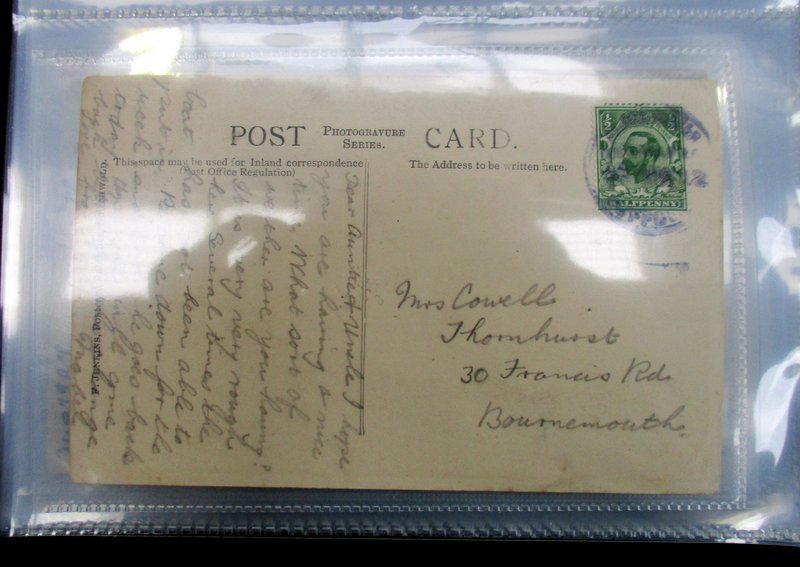 POST PHOTOGRAVURE SERIES. CARD.
This space may be used for Inland correspondence
(Post Office Regulation)
The Address to be written here.
½ ½
HALFPENNY
Mrs Cowell
Thornhurst
30 Francis Rd.
Bournemouth.
Dear Auntie & Uncle I hope
you are having a nice
time. What sort of
weather are you having?
It is very very rough
here. Several times the
boat has not been able to
put in. down for the
week and he goes back
today.
F. JENKINS,